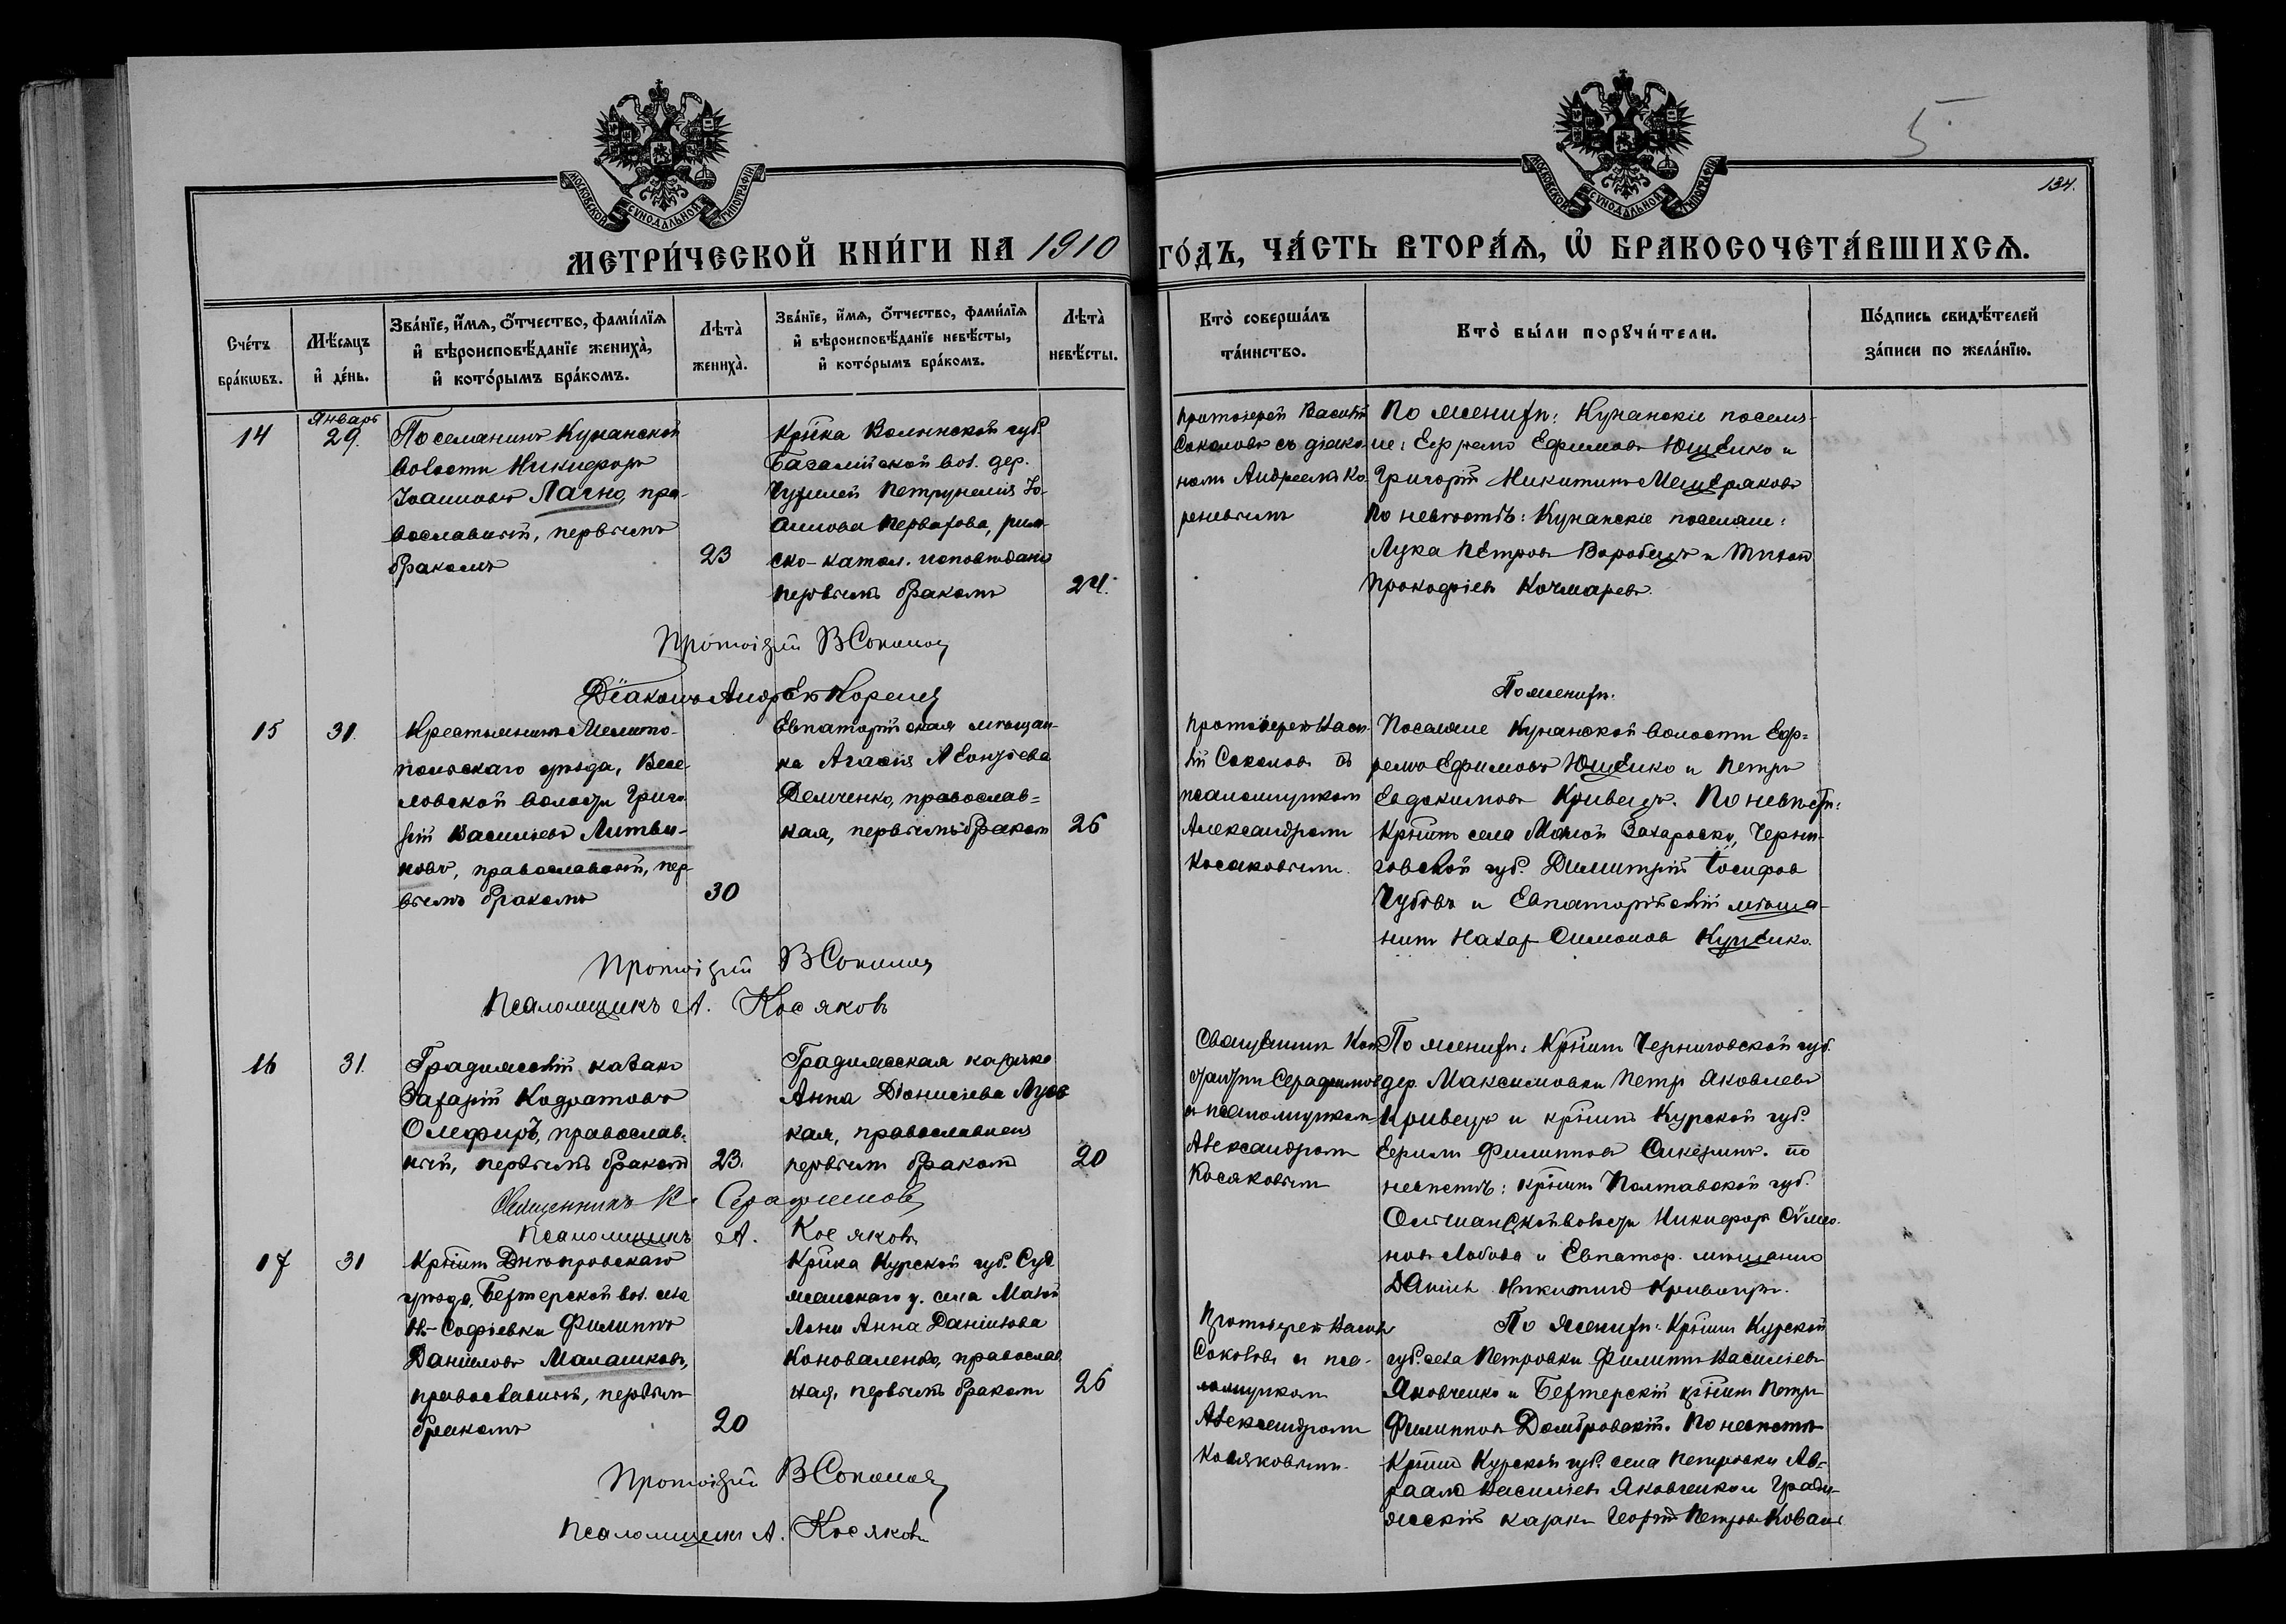 5
134.
МОСКОВСКОЙ СѴНОДАЛЬНОЙ ТИПОГРАФІИ
МОСКОВСКОЙ СѴНОДАЛЬНОЙ ТИПОГРАФІИ
МЕТРИ́ЧЕСКОЙ КНИ́ГИ НА 1910 ГО́ДЪ, ЧА́СТЬ ВТОРА́Ѧ, Ѽ БРАКОСОЧЕТА́ВШИХСѦ.
Сче́тъ бра́кѡвъ.
Мѣ́сяцъ и҆ де́нь.
Зва́нїе, и҆́мѧ, ѻ҆́тчество, фами́лїѧ
и҆ вѣроисповѣ́данїе жениха̀,
и҆ кото́рымъ бра́комъ.
Лѣта̀ жениха̀.
Зва́нїе, и҆́мѧ, ѻ҆́тчество, фами́лїѧ
и҆ вѣроисповѣ́данїе невѣ́сты,
и҆ кото́рымъ бра́комъ.
Лѣта̀ невѣ́сты.
Кто̀ соверша́лъ
та́инство.
Кто̀ бы́ли порꙋчи́тели.
По́дпись свидѣ́телей
за́писи по жела́нїю.
14
Январь
29.
Поселянинъ Кунанской
волости Никифоръ
Іоанновъ Лачно, пра-
вославный, первымъ
бракомъ
23
Кр-ка Волынской губ.
вол. дер.
Петрунелія Іо-
аннова римо-
ско-катол. исповѣданія
первымъ бракомъ
24.
Протоіерей Василій
Соколовъ съ діако-
номъ Андреемъ Ко-
реневымъ
По женихѣ: Кунанскіе поселя-
не: Ефремъ Ефимовъ Ющенко и
Григорій Никитинъ Мещеряковъ
По невѣстѣ: Кунанскіе поселяне:
Лука Петровъ Воробецъ и Тихон
Прокофіевъ Кочмаревъ.
Протоіерей В Соколовъ
Діаконъ Андрей Кореневъ
15
31.
Крестьянинъ Мелито-
польскаго уѣзда, Весе-
ловской волости Григо-
рій Васильевъ Литви-
новъ, православный, пер-
вымъ бракомъ
30
Евпаторійская мѣщан-
ка Агафія Леонтіева
Демченко, православ-
ная, первымъ бракомъ
26
Протоіерей Васи-
лій Соколовъ съ
псаломщикомъ
Александромъ
Косяковымъ.
По женихѣ.
Поселяне Кунанской волости Еф-
ремъ Ефимовъ Ющенко и Петръ
Евдокимовъ Кривецъ. По невѣстѣ:
Кр-нинъ села Малой Черни-
говской губ. Димитрій Іосифов
Чубовъ и Евпаторійскій мѣща-
нинъ Назар Симонов Куценко.
Протоіерей В Соколовъ
Псаломщикъ А. Косяковъ
16
31.
Градижскій казакъ
Захарій Кодратовъ
Олефиръ, православ-
ный, первымъ бракомъ
23.
Градижская казачка
Анна Діонисіева
кая, православная
первымъ бракомъ
20
Священникъ Кон-
Серафимовъ
и псаломщикомъ
Александромъ
Косяковымъ
По женихѣ: Кр-нинъ Черниговской губ.
дер. Максимовки Петр Яковлевъ
Кривецъ и кр-нинъ Курской губ.
Филипповъ по
невѣстѣ: кр-нинъ Полтавской губ.
волости Никифоръ
новъ Лобода и Евпатор. мѣщанинъ
Даніил Никитинъ
Священникъ К. Серафимовъ
Псаломщикъ А. Косяковъ
17
31
Кр-нинъ Днѣпровскаго
уѣзда, Бехтерской вол. села
Н-Софіевки Филиппъ
Даніиловъ Малашковъ,
православный, первымъ
бракомъ
20
Кр-ка Курской губ. Суд-
жанскаго у. села Малой
Локни Анна Даніилова
Коноваленко, православ-
ная, первымъ бракомъ
26
Протоіерей Василій
Соколовъ и пса-
ломщикомъ
Александромъ
Косяковымъ.
По женихѣ: Кр-нинъ Курской
губ. села Петровки Филиппъ Василіевъ
Яковченко и Бехтерскій кр-нинъ Петръ
Филипповъ Домбровскій. По невѣстѣ
Кр-нинъ Курской губ. села Петровки Ав-
раамъ Василіевъ Яковченко и Гради-
жскій казакъ Георгій Петровъ Коваль
Протоіерей В Соколовъ
Псаломщикъ А. Косяковъ